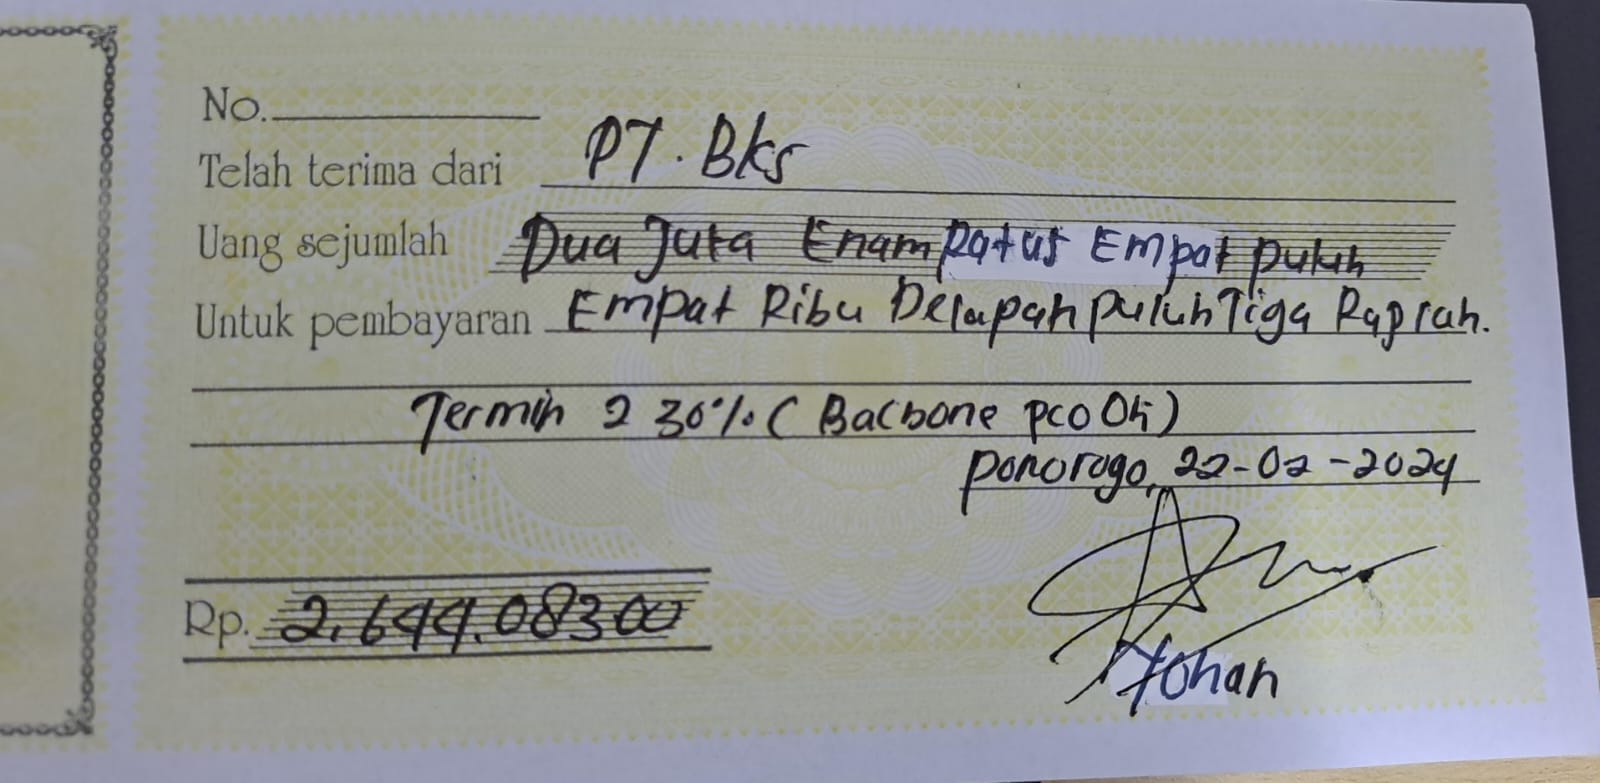 No.
Telah terima dari PT. Bks
Uang sejumlah Dua Juta Enam Ratus Empat puluh
Untuk pembayaran Empat Ribu Delapan puluh Tiga Rupiah.
Termin 2 30% ( Bacbone pco Oh )
ponorogo, 22-02-2024
Rp. 2.644.083 00
Yohan